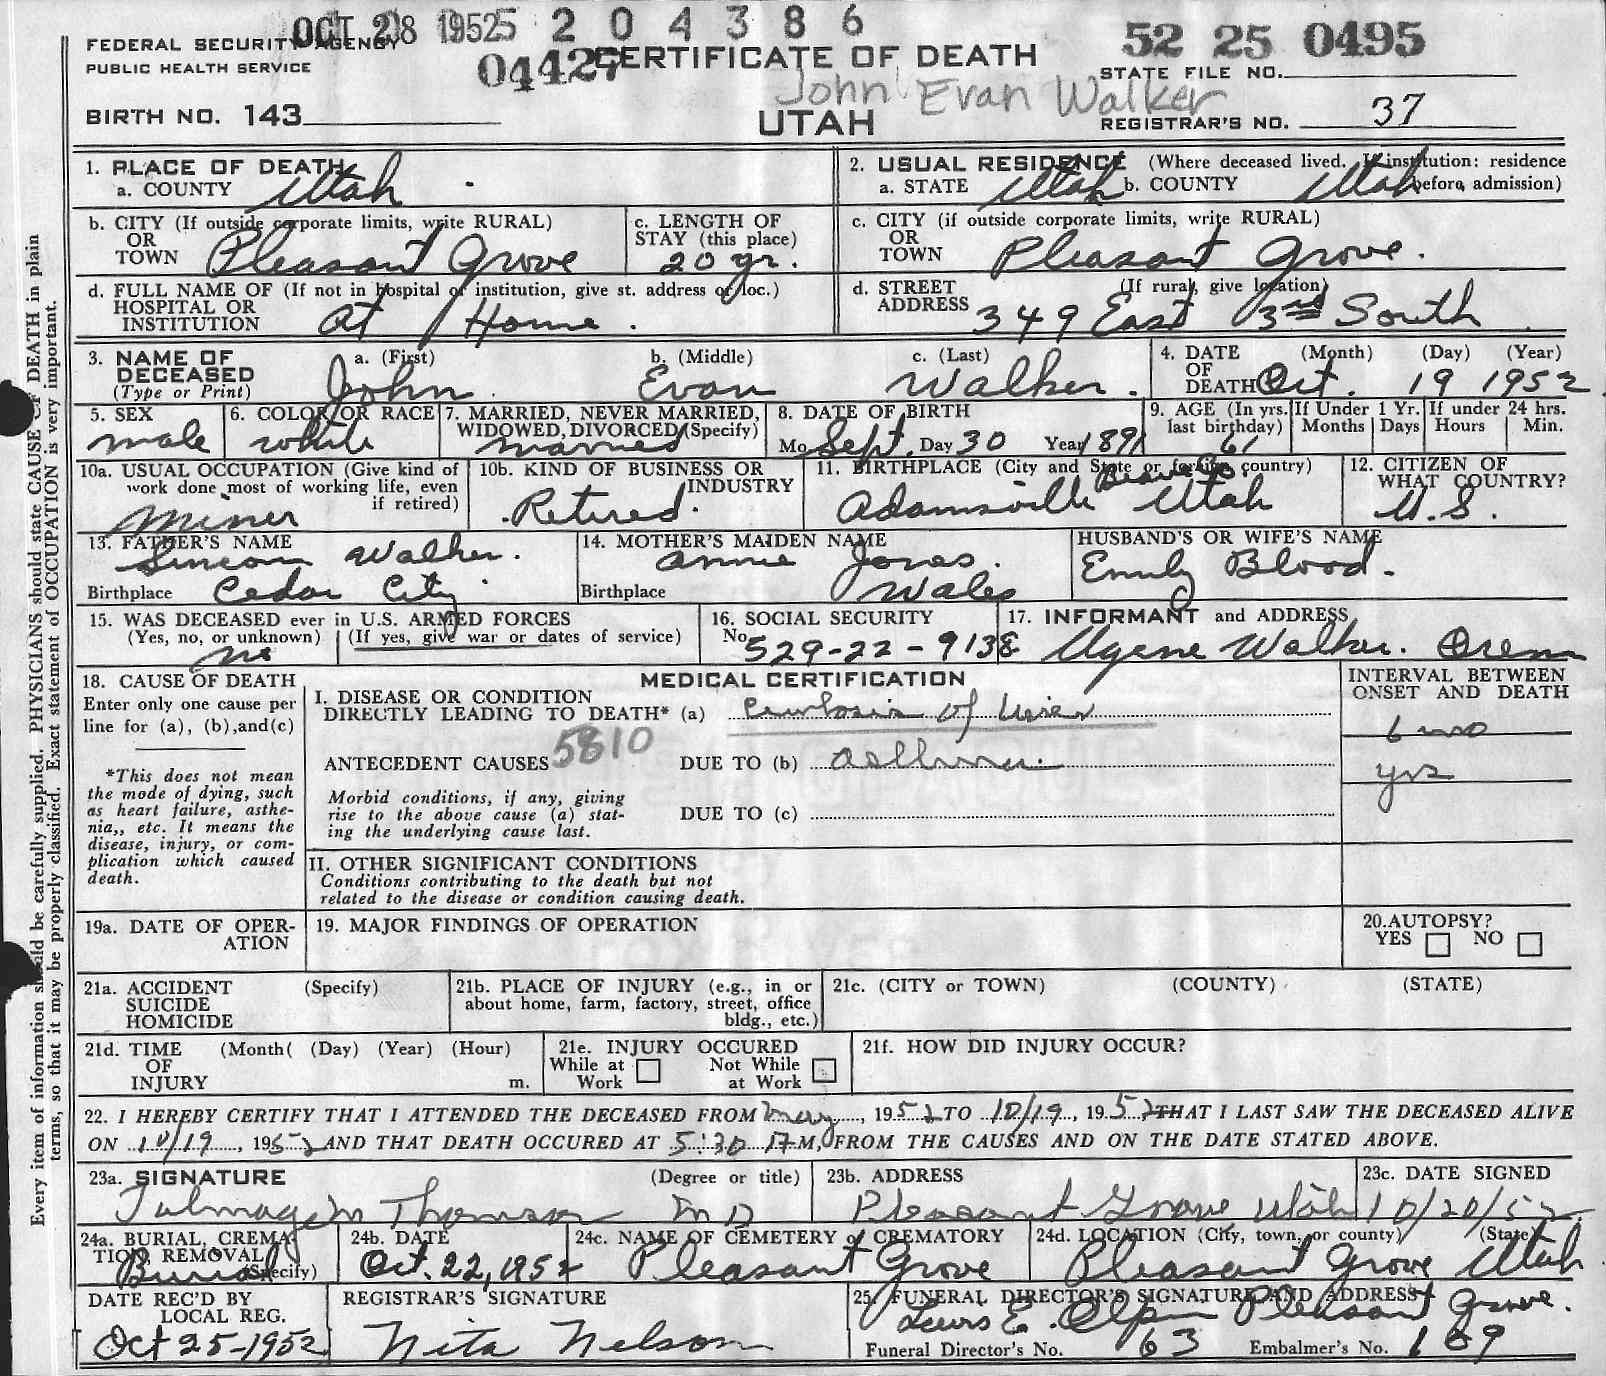 OCT 28 1952 5 2 0 4 3 8 6
52 25 0495
FEDERAL SECURITY AGENCY
PUBLIC HEALTH SERVICE
04427
CERTIFICATE OF DEATH
STATE FILE NO.
John Evan Walker
BIRTH NO. 143
UTAH
REGISTRAR'S NO. 37
1. PLACE OF DEATH
a. COUNTY Utah
2. USUAL RESIDENCE (Where deceased lived. If institution: residence before admission)
a. STATE Utah b. COUNTY Utah
b. CITY (If outside corporate limits, write RURAL)
OR
TOWN Pleasant Grove
c. LENGTH OF
STAY (this place)
20 yr.
c. CITY (if outside corporate limits, write RURAL)
OR
TOWN Pleasant Grove.
d. FULL NAME OF (If not in hospital or institution, give st. address or loc.)
HOSPITAL OR
INSTITUTION At Home.
d. STREET (If rural, give location)
ADDRESS 349 East 3rd South
3. NAME OF
DECEASED
(Type or Print)
a. (First) b. (Middle) c. (Last)
John Evan Walker.
4. DATE (Month) (Day) (Year)
OF
DEATH Oct. 19 1952
5. SEX
male
6. COLOR OR RACE
white
7. MARRIED, NEVER MARRIED,
WIDOWED, DIVORCED (Specify)
married
8. DATE OF BIRTH
Mo Sept. Day 30 Year 1891
9. AGE (In yrs.
last birthday)
61
If Under 1 Yr.
Months Days
If under 24 hrs.
Hours Min.
10a. USUAL OCCUPATION (Give kind of
work done most of working life, even
if retired)
Miner
10b. KIND OF BUSINESS OR
INDUSTRY
Retired.
11. BIRTHPLACE (City and State or foreign country)
Beaver Co.
Adamsville Utah
12. CITIZEN OF
WHAT COUNTRY?
U.S.
13. FATHER'S NAME
Simeon Walker.
Birthplace Cedar City
14. MOTHER'S MAIDEN NAME
Annie Jones.
Birthplace Wales
HUSBAND'S OR WIFE'S NAME
Emily Blood.
15. WAS DECEASED ever in U.S. ARMED FORCES
(Yes, no, or unknown) (If yes, give war or dates of service)
no
16. SOCIAL SECURITY
No. 529-22-9138
17. INFORMANT and ADDRESS
Ugene Walker. Orem
18. CAUSE OF DEATH
Enter only one cause per
line for (a), (b), and (c)
*This does not mean
the mode of dying, such
as heart failure, asthe-
nia,, etc. It means the
disease, injury, or com-
plication which caused
death.
MEDICAL CERTIFICATION
I. DISEASE OR CONDITION
DIRECTLY LEADING TO DEATH* (a) Cirrhosis of liver
5810
ANTECEDENT CAUSES DUE TO (b) asthma
Morbid conditions, if any, giving
rise to the above cause (a) stat-
ing the underlying cause last.
DUE TO (c)
INTERVAL BETWEEN
ONSET AND DEATH
6 mo
yrs
II. OTHER SIGNIFICANT CONDITIONS
Conditions contributing to the death but not
related to the disease or condition causing death.
19a. DATE OF OPER-
ATION
19. MAJOR FINDINGS OF OPERATION
20. AUTOPSY?
YES NO
21a. ACCIDENT (Specify)
SUICIDE
HOMICIDE
21b. PLACE OF INJURY (e.g., in or
about home, farm, factory, street, office
bldg., etc.)
21c. (CITY or TOWN) (COUNTY) (STATE)
21d. TIME (Month( (Day) (Year) (Hour)
OF
INJURY m.
21e. INJURY OCCURED
While at Work Not While at Work
21f. HOW DID INJURY OCCUR?
22. I HEREBY CERTIFY THAT I ATTENDED THE DECEASED FROM May, 1952 TO 10/19, 1952 THAT I LAST SAW THE DECEASED ALIVE
ON 10/19, 1952 AND THAT DEATH OCCURED AT 5:30 P M, FROM THE CAUSES AND ON THE DATE STATED ABOVE.
23a. SIGNATURE (Degree or title)
Talmage M Thomson M D
23b. ADDRESS
Pleasant Grove Utah
23c. DATE SIGNED
10/20/52
24a. BURIAL, CREMA-
TION, REMOVAL
(Specify)
Burial
24b. DATE
Oct. 22, 1952
24c. NAME OF CEMETERY or CREMATORY
Pleasant Grove
24d. LOCATION (City, town, or county) (State)
Pleasant Grove Utah
DATE REC'D BY
LOCAL REG.
Oct 25-1952
REGISTRAR'S SIGNATURE
Nita Nelson
25. FUNERAL DIRECTOR'S SIGNATURE AND ADDRESS
Lewis E. Olpin Pleasant Grove.
Funeral Director's No. 63 Embalmer's No. 109
Every item of information should be carefully supplied. PHYSICIANS should state CAUSE OF DEATH in plain
terms, so that it may be properly classified. Exact statement of OCCUPATION is very important.